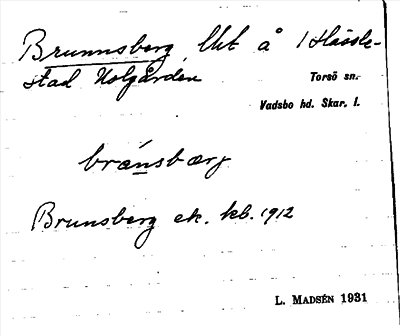 Brunnsberg, lht å 1 Hassle-
stad Holgården
Torsö sn.
Vadsbo hd. Skar. l.
bránsbærg
Brunsberg ek. kb. 1912
L. MADSÉN 1931